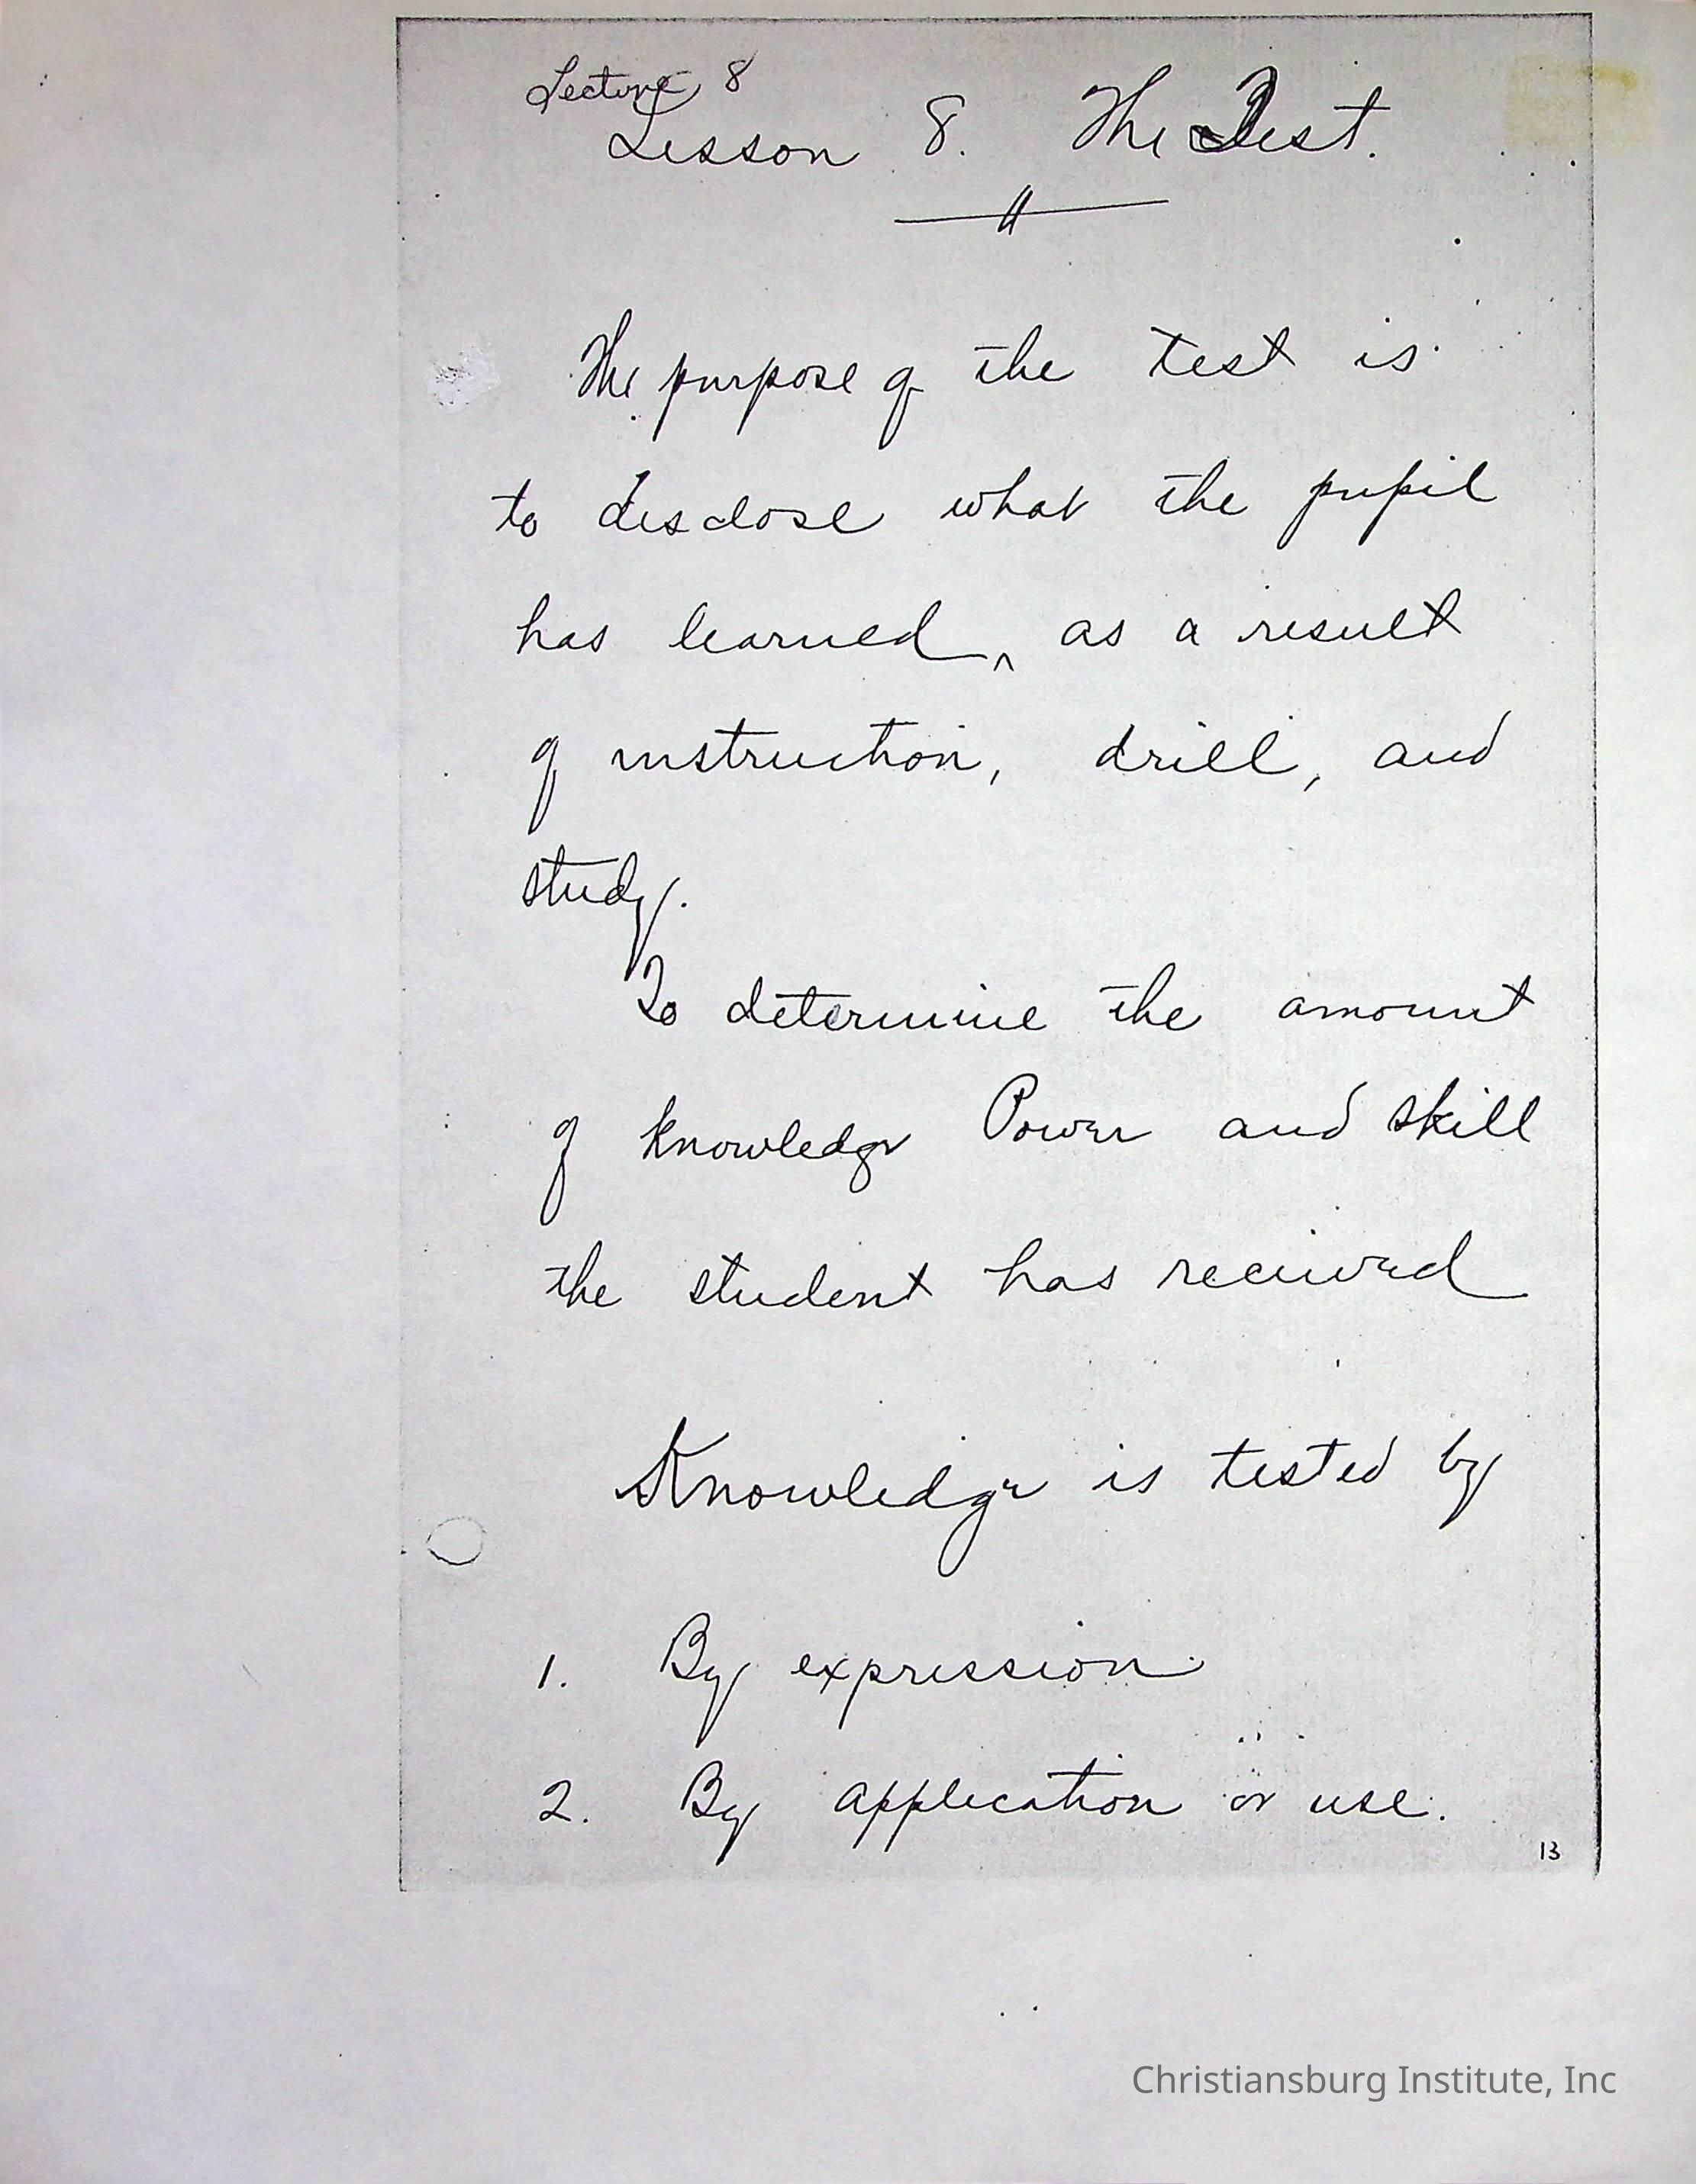 Lecture 8
Lesson 8. The Test.
The purpose of the test is
to disclose what the pupil
has learned, as a result
of instruction, drill, and
study.
To determine the amount
of knowledge Power and skill
the student has received
Knowledge is tested by
1. By expression.
2. By application or use.
13
Christiansburg Institute, Inc